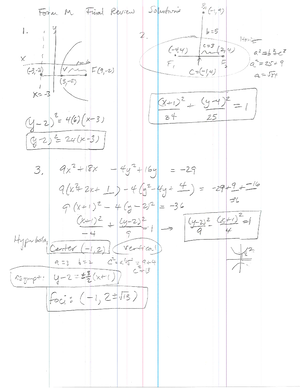 Form M Final Review Solutions
1.
F(9,-2)
x=-3
(y-2)² = 4(6)(x-3)
(y-2)² = 24(x-3)
2.
b=5
c=3
(-4,4)
(2,4)
F₁
C=(-1,4)
a²=25+9
a=√34
(x+1)²/34 + (y-4)²/25 = 1
3. 9x²+18x -4y²+16y = -29
9(x²+2x+1) -4(y²-4y+4) = -29+9+-16
9(x+1)² -4(y-2)² = -36
(x+1)²/-4 + (y-2)²/9 = 1 → (y-2)²/9 - (x+1)²/4 = 1
Hyperbola
Center (-1,2) vertical
a=3 b=2 c²=a²+b²=9+4
Asympt: y-2=±3/2(x+1)
foci: (-1, 2±√13)